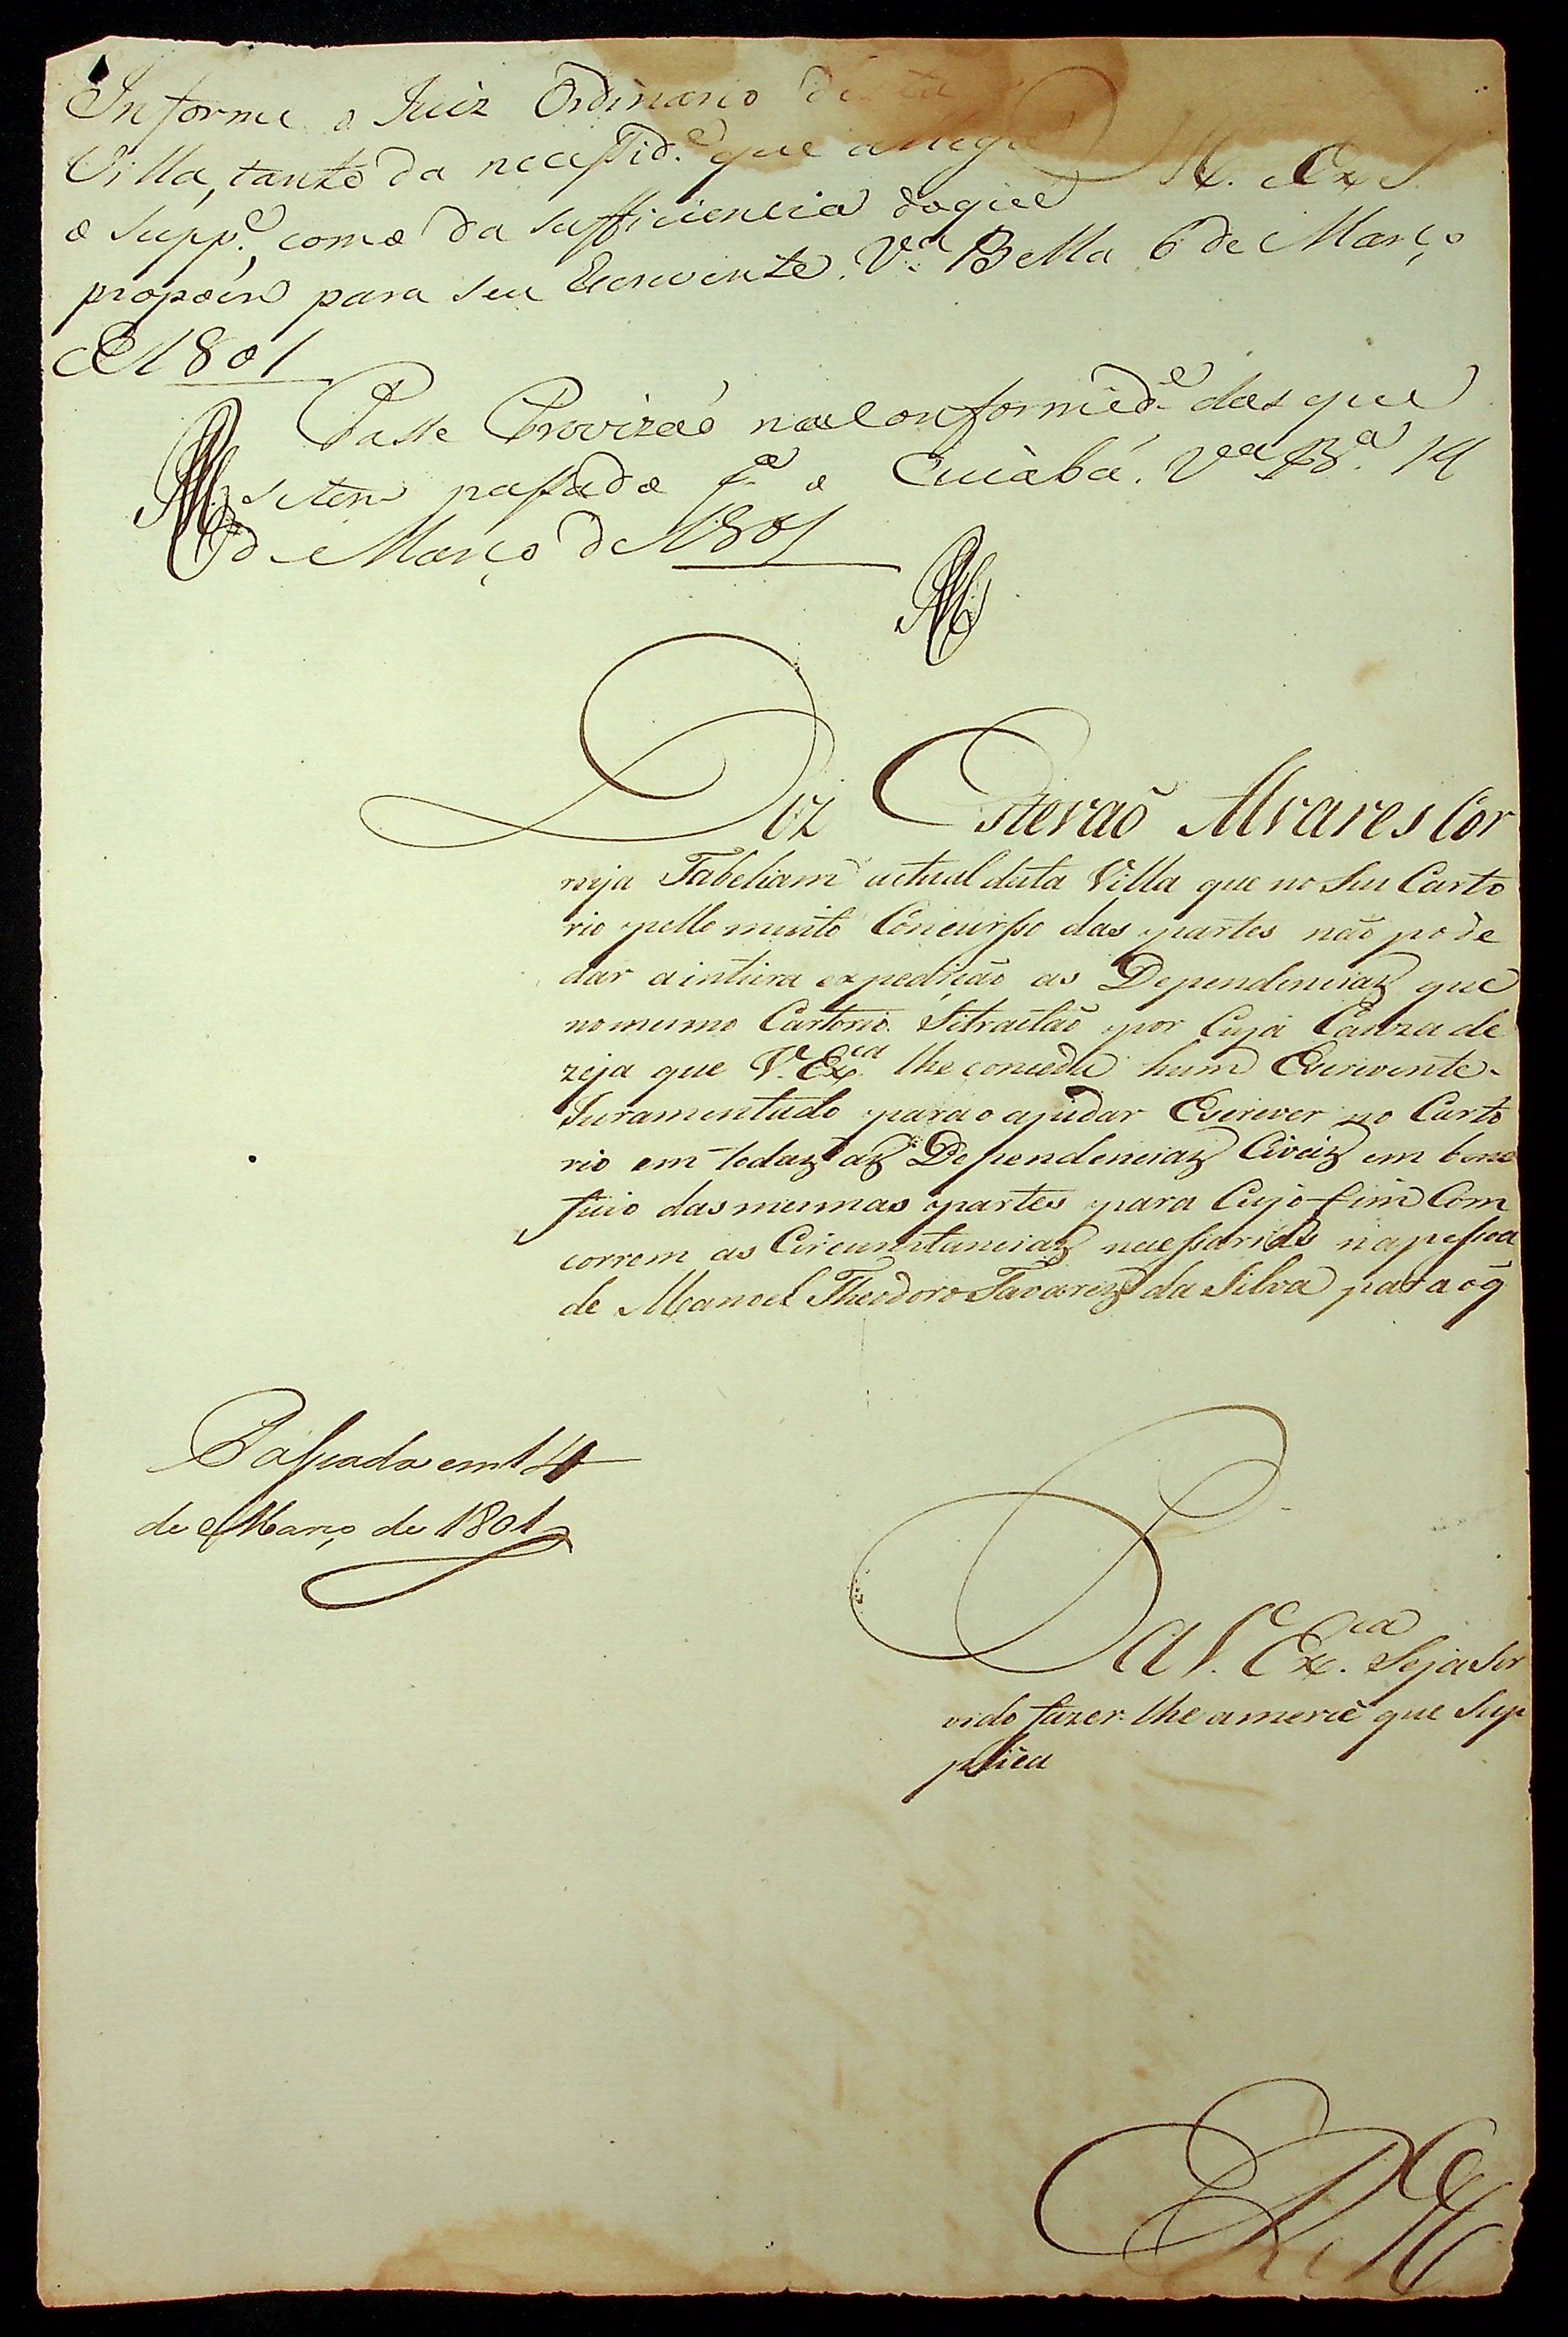 Informe o Juiz Ordinario desta
Villa, tanto da necessid.e que allega
Il. Ex. S.
o Supp.e, como da sufficiencia doque
propoem para seu Escrevente. V.a Bella 6 de Março
de 1801
Passe Provizaõ na conformid.e das que
se tem passado p.a o Cuiabá. V.a B.a 14
de Março de 1801
Diz Estevaõ Alvares Cor
reja Tabeliam actual desta Villa que no Seu Carto
rio pello muito Concurso das partes naõ pode
dar a inteira expediçaõ as Dependenciaz que
no mesmo Cartorio Sitractaõ por Cuja Cauza de
zeja que V. Ex.cia lhe conceda hum Escrevente
Juramentado para o ajudar Escrever no Carto
rio em todaz az Dependenciaz Civeiz em bene
ficio das mesmas partes para Cujo fim Com
correm as Circunstanciaz necessarias na pessoa
de Manoel Theodoro Tavarez da Silva para o q̃
Passada em 14
de Março de 1801
P. a V. Ex.cia Seja Ser
vido fazer lhe a merce que Sup
plica
E R M.ce